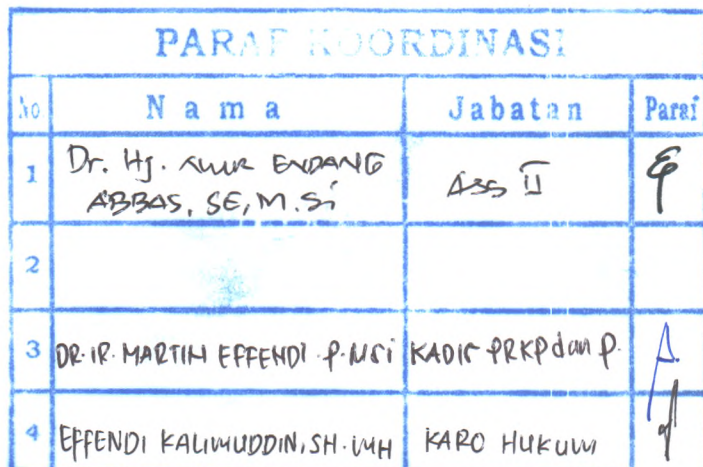 PARAF KOORDINASI
No Nama Jabatan Paraf
1 Dr. Hj. Nur ENDANG ABBAS, SE, M.Si ASS II
2
3 DR.IR. MARTIN EFFENDI .P.MSi KADIS PRKP dan P.
4 EFFENDI KALIMUDDIN, SH.MH KARO HUKUM